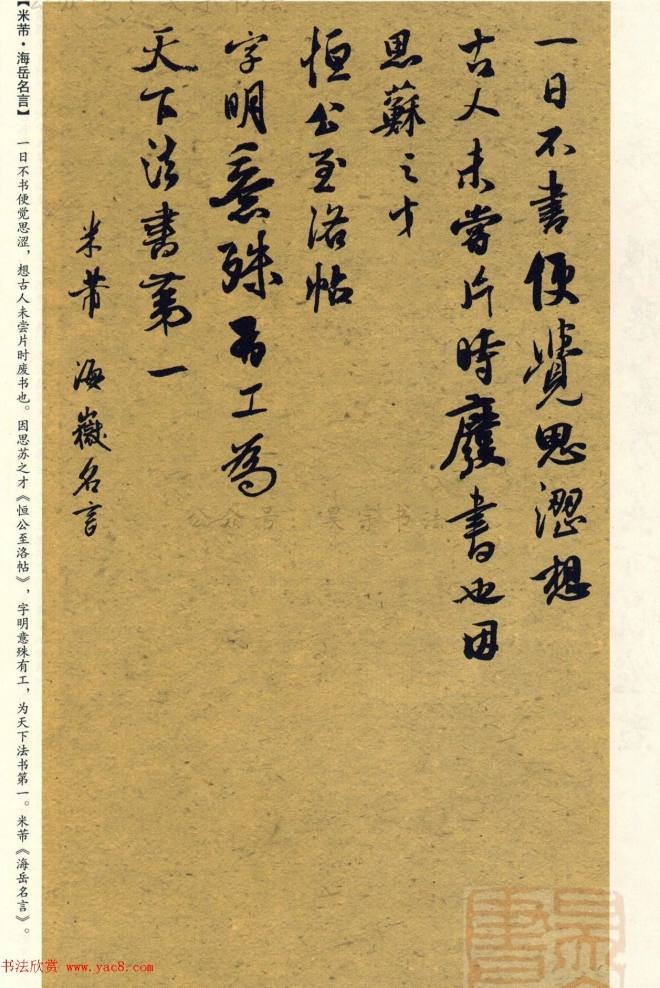 一日不書便覺思澀想
古人未嘗片時廢書也因
思蘇之才
恒公至洛帖
字明意殊有工為
天下法書第一
米芾 海嶽名言
【米芾·海岳名言】 一日不书便觉思涩，想古人未尝片时废书也。因思苏之才《恒公至洛帖》，字明意殊有工，为天下法书第一。米芾《海岳名言》。
书法欣赏 www.yac8.com